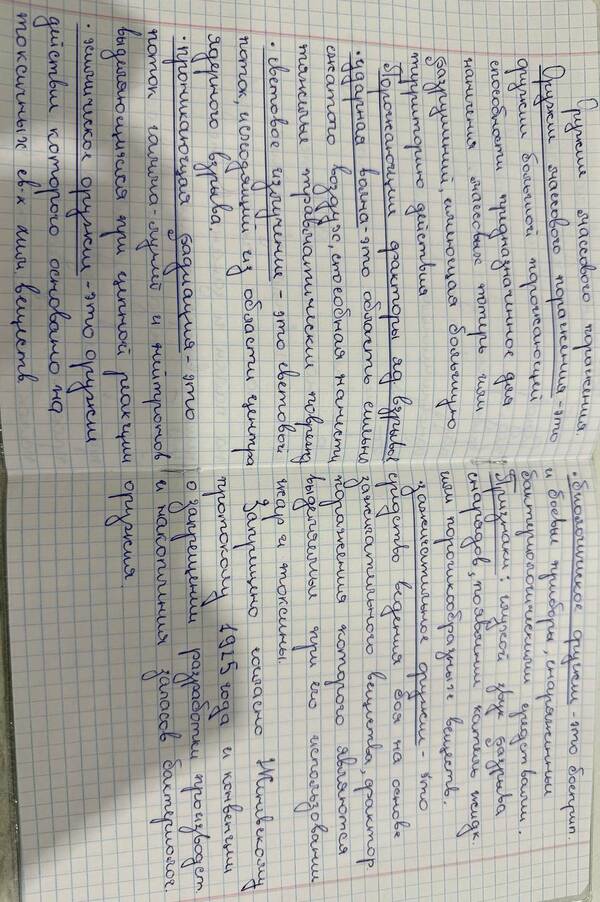 Оружие массового поражения.
Оружие массового поражения - это
оружие большой поражающей
способности предназначенное для
нанечения массовых потерь или
разрушений, имеющая большую
территорию действия
Поражающие факторы яд взрыва:
• ударная волна - это область сильно
сжатого воздуха, способная нанести
тяжелые травматические поврежд
• световое излучение - это световой
поток, исходящий из области центра
ядерного взрыва.
• проникающая радиация - это
поток гамма-лучей и нейтронов
выделяющийся при цепной реакции
• химическое оружие - это оружие
действие которого основано на
токсичных св-х хим веществ
• биологическое оружие - это боеприп.
и боевые приборы, снаряженные
бактериологическими средствами.
Признаки: глухой звук разрыва
снарядов, появление капель жидк.
или порошкообразных веществ.
зажигательное оружие - это
средство ведения боя на основе
зажигательного вещества, фактор
поражения которого являются
выделяемые при его использовании
жар и токсины.
Запрещено согласно Женевскому
протоколу 1925 года и конвенции
о запрещении разработки производст.
и накопления запасов бактериолог.
оружия.